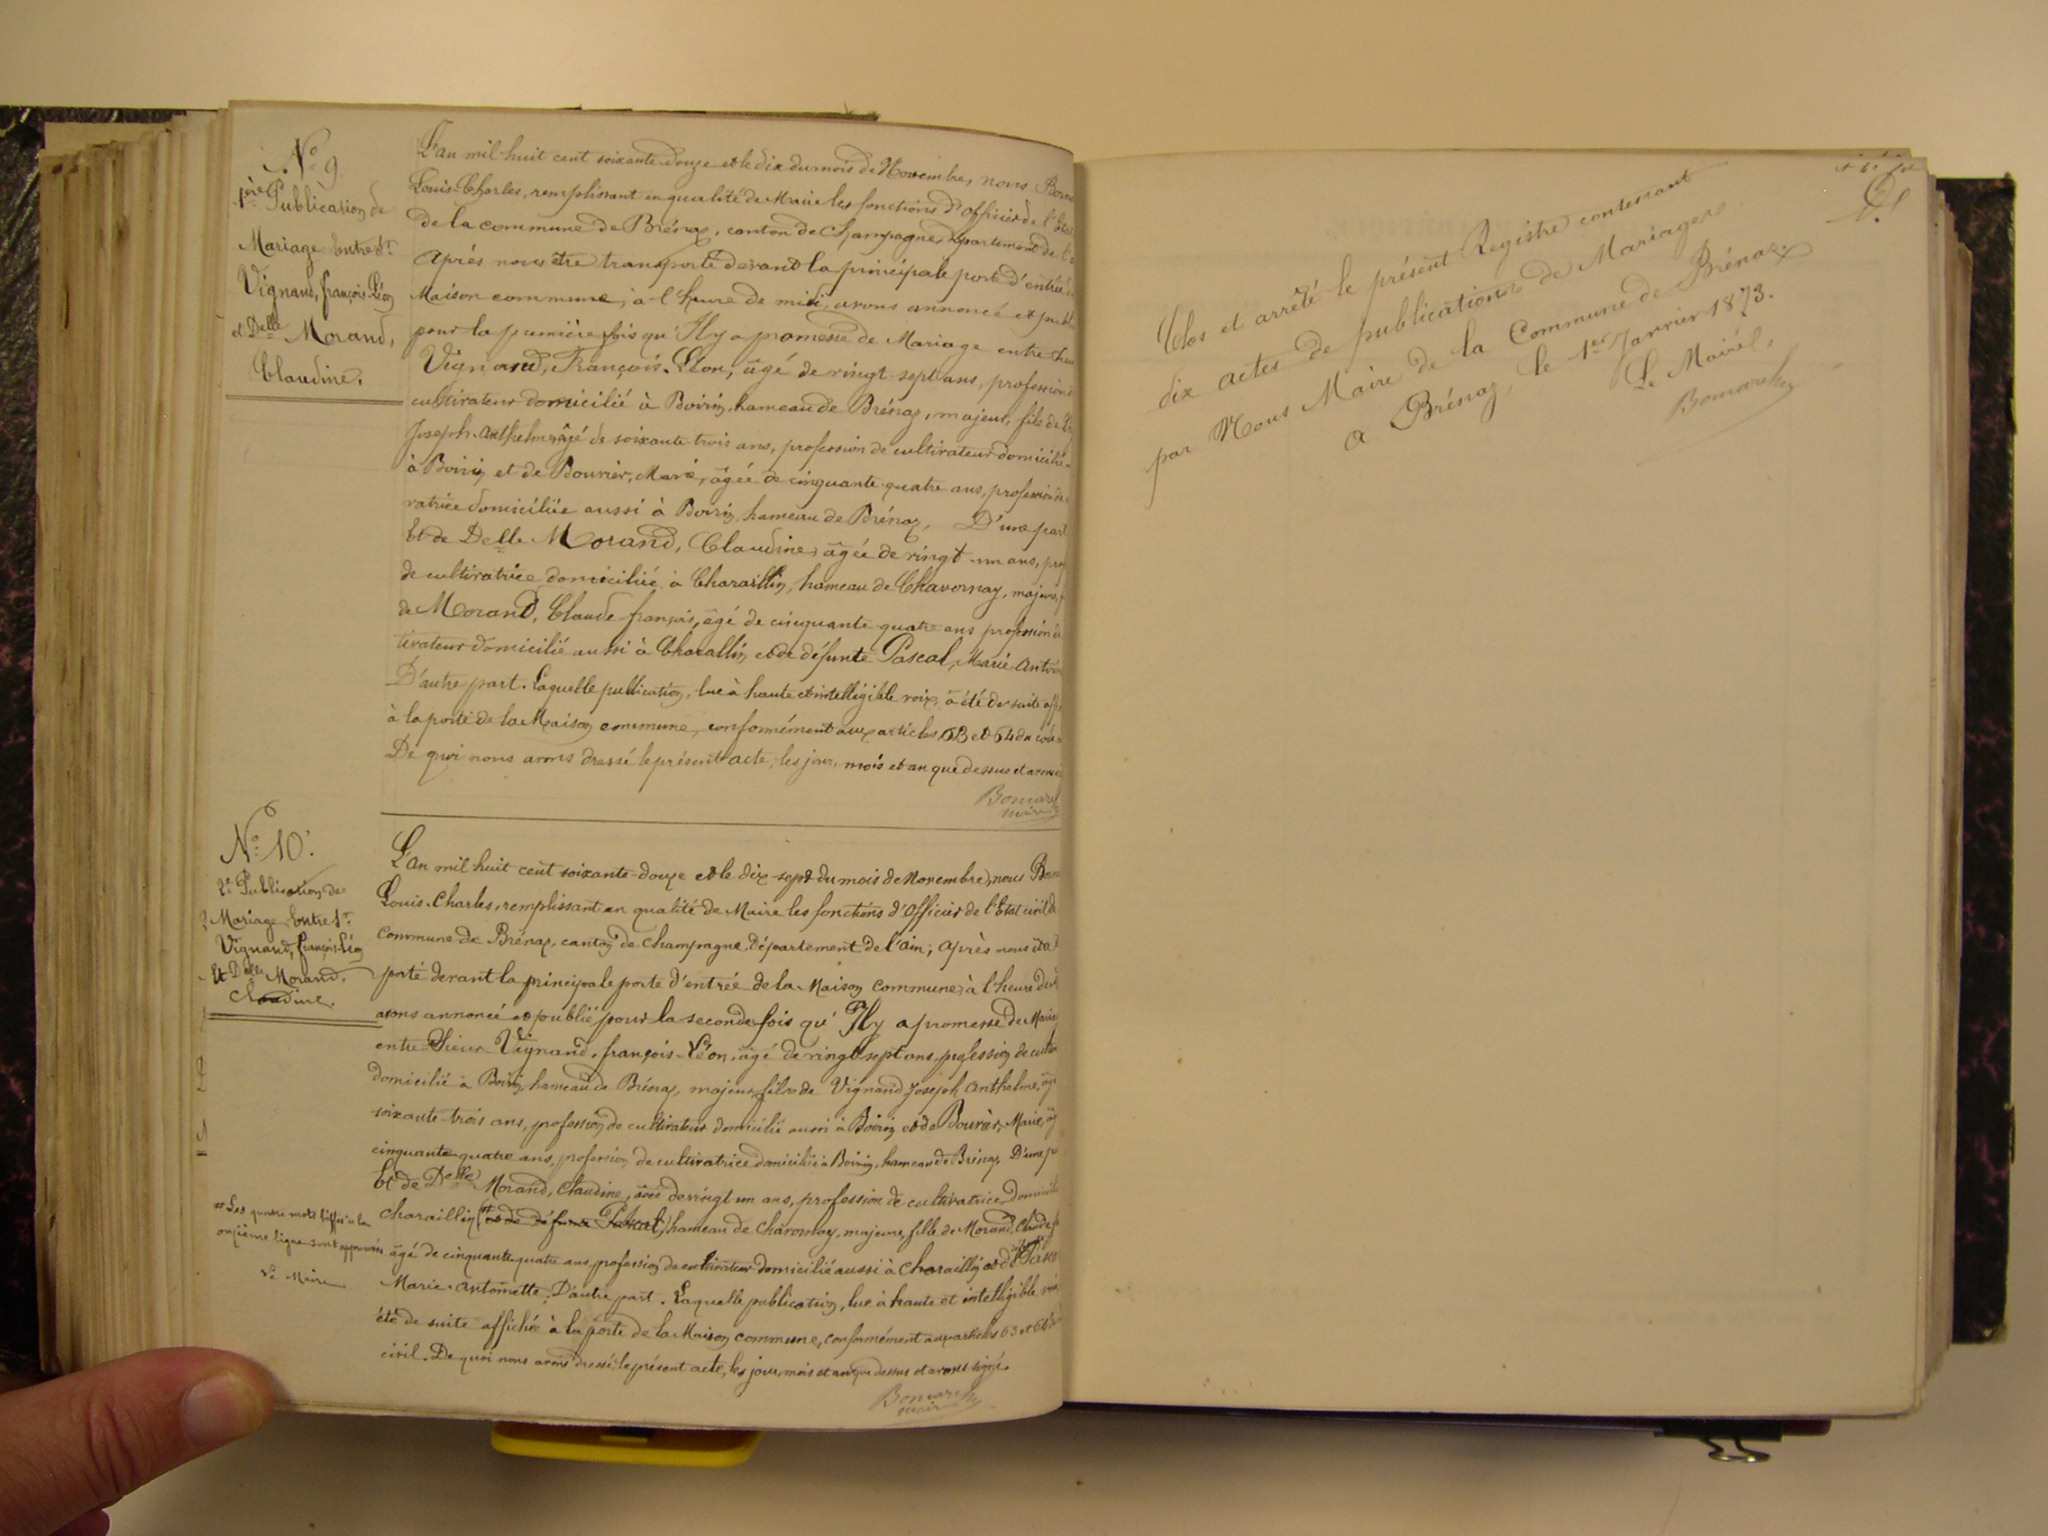 N° 9
1ère Publication de
Mariage Entre Sr
Vignand, françois-Léon
et Delle Morand,
Claudine.
L'an mil huit cent soixante-douze et le dix du mois de Novembre, nous
Louis-Charles, remplissant en qualité de Maire les fonctions d'Officier de l'
de la commune de Brénaz, canton de Champagne, département de
Après nous être transporté devant la principale porte d'entrée
Maison commune, à l'heure de midi, avons annoncé et
pour la première fois qu'Il y a promesse de Mariage entre
Vignand, François-Léon, âgé de vingt-sept ans, profession
cultivateur domicilié à Boirin, hameau de Brénaz, majeur, fils de
Joseph-Anthelme, âgé de soixante-trois ans, profession de cultivateur domicilié
à Boirin et de Bourier, Marie, âgée de cinquante-quatre ans, profession
vatrice domiciliée aussi à Boirin, hameau de Brénaz, D'une part
Et de Delle Morand, Claudine, âgée de vingt-un ans,
de cultivatrice domiciliée à Charaillin, hameau de Chavornay,
de Morand, Claude françois, âgé de cinquante-quatre ans profession
tivateur domicilié aussi à Charallin, et de défunte Pascal, Marie
D'autre part. Laquelle publication, lue à haute et intelligible voix, a été de suite
à la porte de la Maison commune, conformément aux articles 63 et 64 du
De quoi nous avons dressé le présent acte, les jour, mois et an que dessus et
maire
N° 10.
2e Publication de
Mariage Entre Sr
Vignand, françois-Léon
Et Delle Morand.
Claudine.
L'an mil huit cent soixante-douze et le dix-sept du mois de Novembre, nous
Louis-Charles, remplissant en qualité de Maire les fonctions d'Officier de l'Etat civil
commune de Brénaz, canton de Champagne, département de l'ain; après nous
porté devant la principale porte d'entrée de la Maison commune, à l'heure
avons annoncé et publié pour la seconde fois qu'Il y a promesse de
entre Sieur Vignand, françois-Léon, âgé de vingt-sept ans, profession de
domicilié à Boirin, hameau de Brénaz, majeur, fils de Vignand Joseph Anthelme,
soixante-trois ans, profession de cultivateur domicilié aussi à Boirin et de Bourier, Marie,
cinquante-quatre ans, profession de cultivatrice domiciliée à Boirin, hameau de Brénaz, D'une
Et de Delle Morand, Claudine, âgée de vingt un ans, profession de cultivatrice
charaillin (et de défunte Pascal) hameau de Chavornay, majeure, fille de Morand,
âgé de cinquante quatre ans, profession de cultivateur domicilié aussi à Charaillin et de
Marie-Antoinette, D'autre part. Laquelle publication, lue à haute et intelligible
été de suite affichée à la porte de la Maison commune, conformément aux articles 63 et 64
civil. De quoi nous avons dressé le présent acte, les jour, mois et an que dessus et avons signé.
Les quatre mots biffés à la
onzième ligne sont approuvés
Le Maire
maire
Clos et arrêté le présent Registre contenant
dix actes de publications de Mariages
par Nous Maire de la Commune de Brénaz.
a Brénaz, le 1er Janvier 1873.
Le Maire,